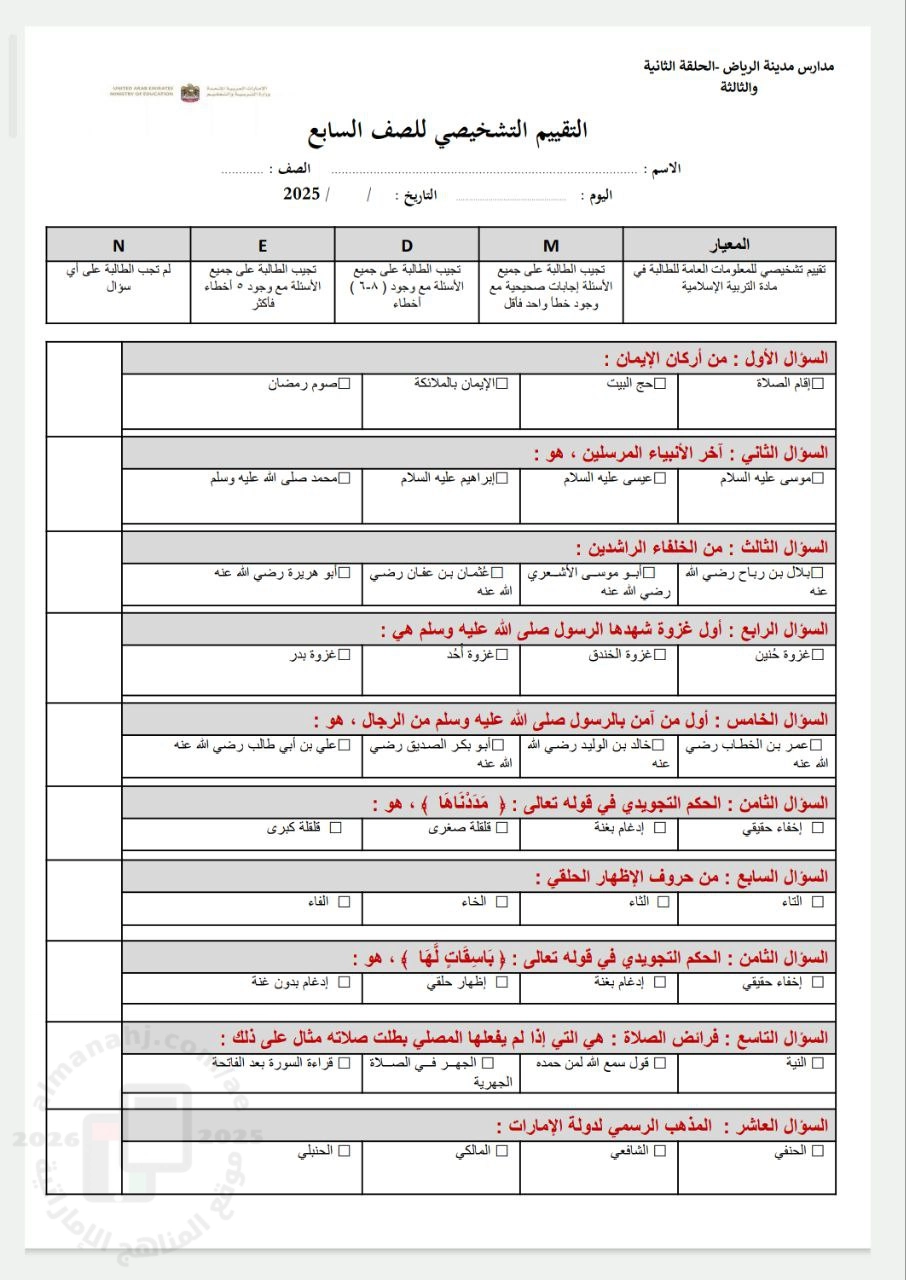 مدارس مدينة الرياض -الحلقة الثانية
والثالثة
UNITED ARAB EMIRATES
MINISTRY OF EDUCATION
الإمارات العربية المتحدة
وزارة التربية والتعليم
التقييم التشخيصي للصف السابع
الاسم : ........................ الصف : ............
اليوم : ........................ التاريخ : / / 2025
المعيار M D E N
تقييم تشخيصي للمعلومات العامة للطالبة في
مادة التربية الإسلامية
تجيب الطالبة على جميع
الأسئلة إجابات صحيحية مع
وجود خطأ واحد فأقل
تجيب الطالبة على جميع
الأسئلة مع وجود ( ٨-٦ )
أخطاء
تجيب الطالبة على جميع
الأسئلة مع وجود ٥ أخطاء
فأكثر
لم تجب الطالبة على أي
سؤال
السؤال الأول : من أركان الإيمان :
□إقام الصلاة □حج البيت □الإيمان بالملائكة □صوم رمضان
السؤال الثاني : آخر الأنبياء المرسلين ، هو :
□موسى عليه السلام □عيسى عليه السلام □إبراهيم عليه السلام □محمد صلى الله عليه وسلم
السؤال الثالث : من الخلفاء الراشدين :
□بلال بن رباح رضي الله
عنه
□أبو موسى الأشعري
رضي الله عنه
□عُثمان بن عفان رضي
الله عنه
□أبو هريرة رضي الله عنه
السؤال الرابع : أول غزوة شهدها الرسول صلى الله عليه وسلم هي :
□غزوة حُنين □غزوة الخندق □غزوة أُحُد □غزوة بدر
السؤال الخامس : أول من آمن بالرسول صلى الله عليه وسلم من الرجال ، هو :
□عمر بن الخطاب رضي
الله عنه
□خالد بن الوليد رضي الله
عنه
□أبو بكر الصديق رضي
الله عنه
□علي بن أبي طالب رضي الله عنه
السؤال الثامن : الحكم التجويدي في قوله تعالى : ﴿ مَدَدْنَاهَا ﴾ ، هو :
□ إخفاء حقيقي □ إدغام بغنة □ قلقلة صغرى □ قلقلة كبرى
السؤال السابع : من حروف الإظهار الحلقي :
□ التاء □ الثاء □ الخاء □ الفاء
السؤال الثامن : الحكم التجويدي في قوله تعالى : ﴿ بَاسِقَاتٍ لَّهَا ﴾ ، هو :
□ إخفاء حقيقي □ إدغام بغنة □ إظهار حلقي □ إدغام بدون غنة
السؤال التاسع : فرائض الصلاة : هي التي إذا لم يفعلها المصلي بطلت صلاته مثال على ذلك :
□ النية □ قول سمع الله لمن حمده □ الجهر في الصلاة
الجهرية
□ قراءة السورة بعد الفاتحة
السؤال العاشر : المذهب الرسمي لدولة الإمارات :
□ الحنفي □ الشافعي □ المالكي □ الحنبلي
almanahj.com/ae
2026 2025
موقع المناهج الإماراتية